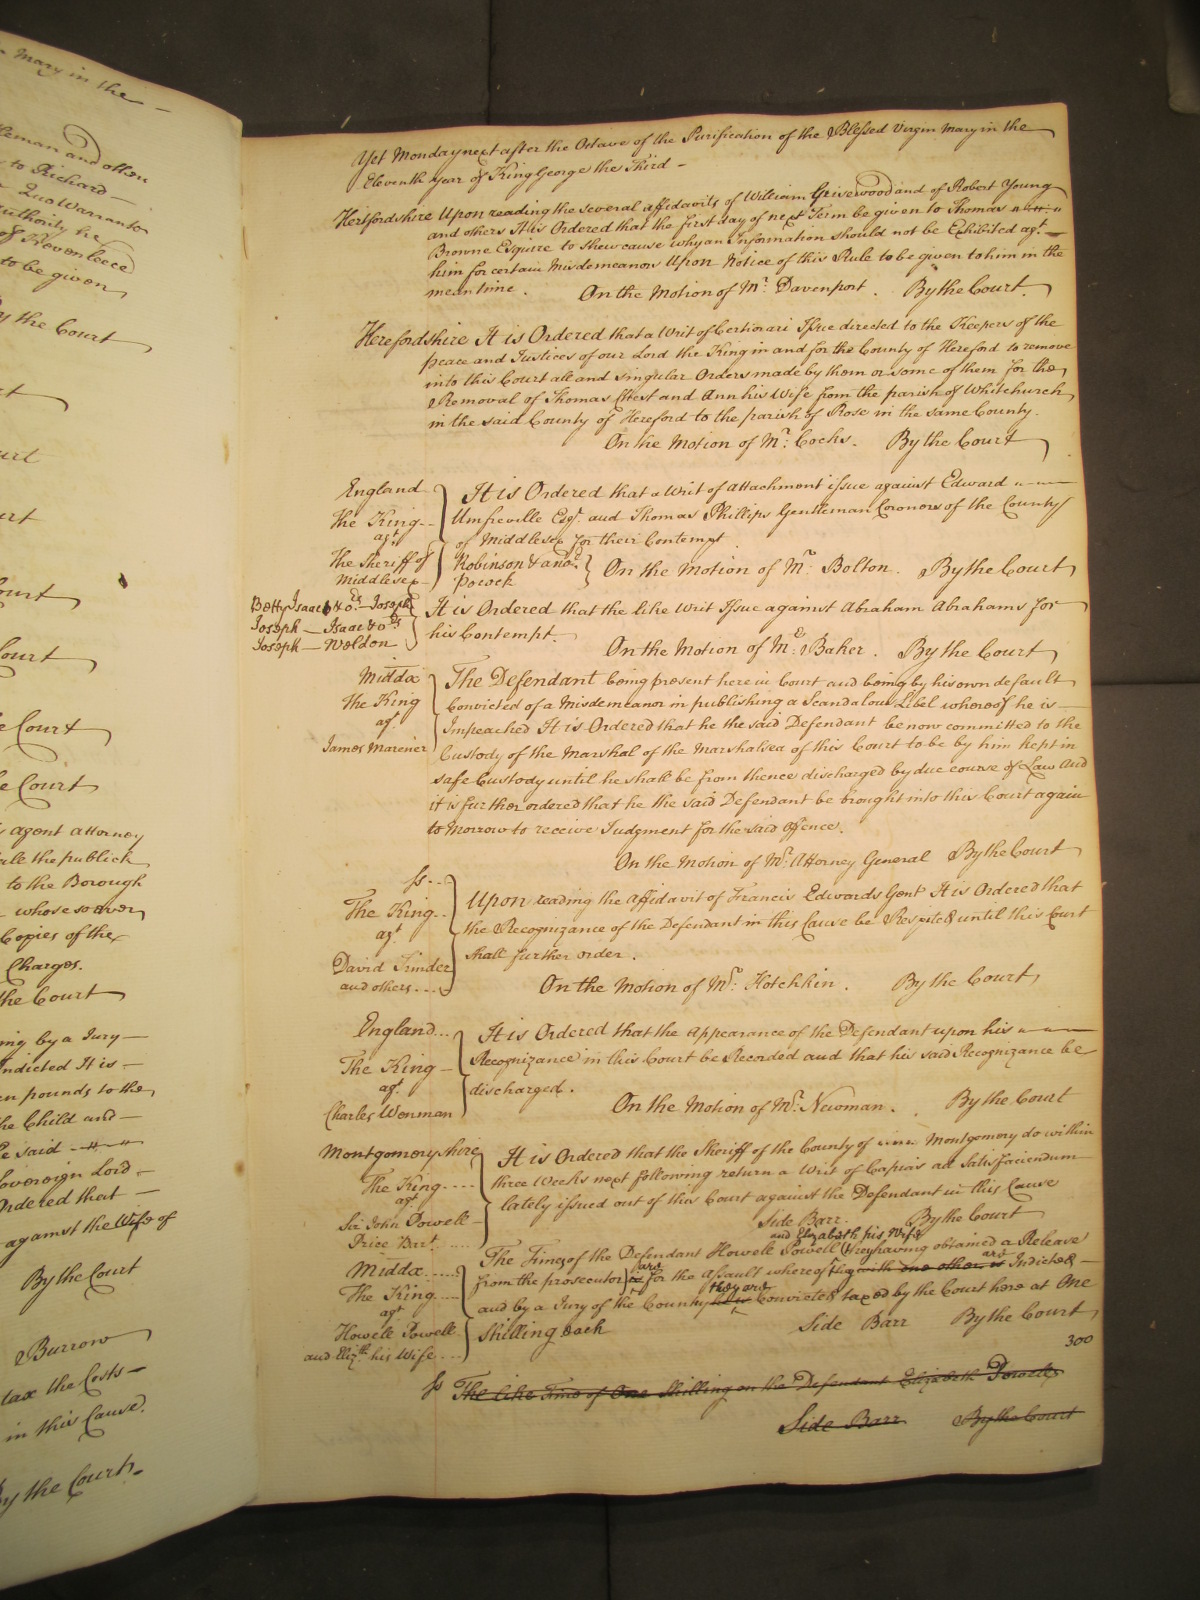 Mary in the
leman and other
to Richard
Quo Warranto
authority he
to be given
By the Court
Court
Court
Court
Court
Court
Court
Court
agent attorney
the publick
to the Borough
whosesoever
Copies of the
Charges.
the Court
ing by a Jury
Indicted It is
en pounds to the
the Child and
said
Sovereign Lord
Ordered that
against the Wife of
By the Court
Burrow
tax the Costs
in this Cause.
By the Court
Yet Monday next after the Octave of the Purification of the Blessed Virgin Mary in the
Eleventh Year of King George the Third
Hertfordshire Upon reading the several affidavits of William Griesewood and of Robert Young
and others It is Ordered that the first day of next Term be given to Thomas
Browne Esquire to shew cause why an Information should not be Exhibited agt.
him for certain Misdemeanors Upon Notice of this Rule to be given to him in the
meantime. On the Motion of Mr. Davenport. By the Court.
Herefordshire It is Ordered that a Writ of Certiorari Issue directed to the Keepers of the
peace and Justices of our Lord the King in and for the County of Hereford to remove
into this Court all and singular Orders made by them or some of them for the
Removal of Thomas and Ann his Wife from the parish of Whitchurch
in the said County of Hereford to the parish of Rose in the same County.
On the Motion of Mr. Cocks. By the Court
England
The King
agt.
The Sheriff of
Middlesex
It is Ordered that a Writ of Attachment issue against Edward
Umfreville Esqr. and Thomas Phillips Gentleman Coroners of the County
of Middlesex for their Contempt
Robinson & anor.
Pocock
On the Motion of Mr. Bolton. By the Court
Betty Isaac & ors. Joseph
Joseph Isaac & ors
Joseph Weldon
It is Ordered that the like Writ Issue against Abraham Abrahams for
his Contempt.
On the Motion of Mr. Baker. By the Court
Middx
The King
agt.
James Marener
The Defendant being present here in Court and being by his own default
Convicted of a Misdemeanor in publishing a Scandalous Libel whereof he is
Impeached It is Ordered that he the said Defendant be now committed to the
Custody of the Marshal of the Marshalsea of this Court to be by him kept in
safe Custody until he shall be from thence discharged by due course of Law And
it is further ordered that he the said Defendant be brought into this Court again
to Morrow to receive Judgment for the said Offence.
On the Motion of Mr. Attorney General By the Court
Ss
The King
agt.
David Trinder
and others
Upon reading the Affidavit of Francis Edwards Gent It is Ordered that
the Recognizance of the Defendant in this Cause be Respited until this Court
shall further order.
On the Motion of Mr. Hotchkin. By the Court
England
The King
agt.
Charles Wenman
It is Ordered that the Appearance of the Defendant upon his
Recognizance in this Court be Recorded and that his said Recognizance be
discharged.
On the Motion of Mr. Newman. By the Court
Montgomeryshire
The King
agt.
Sir John Powell
Price Bart.
It is Ordered that the Sheriff of the County of Montgomery do within
three Weeks next following return a Writ of Capias ad Satisfaciendum
lately issued out of this Court against the Defendant in this Cause
Side Barr. By the Court
Middx
The King
agt.
Howell Powell
and Elizth. his Wife
and Elizabeth his Wife
The Fines of the Defendant Howell Powell (they having obtained a Release
from the prosecutor) is are for the Assault whereof they with one other is are Indicted
and by a Jury of the County they are Convicted taxed by the Court here at One
Shilling each Side Barr By the Court
300
Ss The like Fine of One Shilling on the Defendant Elizabeth Powell
Side Barr By the Court